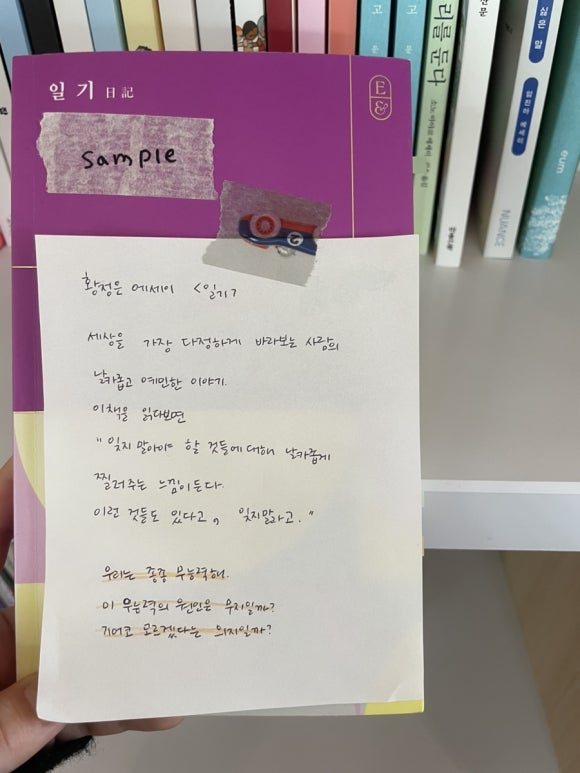 일기 日記
E
&
sample
황정은 에세이 <일기>
세상을 가장 다정하게 바라보는 사람의
날카롭고 예민한 이야기.
이책을 읽다보면
"잊지 말아야 할 것들에대해 날카롭게
찔러주는 느낌이든다.
이런 것들도 있다고, 잊지말라고."
우리는 종종 무능력해.
이 무능력의 원인은 무지일까?
기어코 모르겠다는 의지일까?
고
문
고
문
리를 둔다
산문
싫은 말
에세이
NUANCE
eum